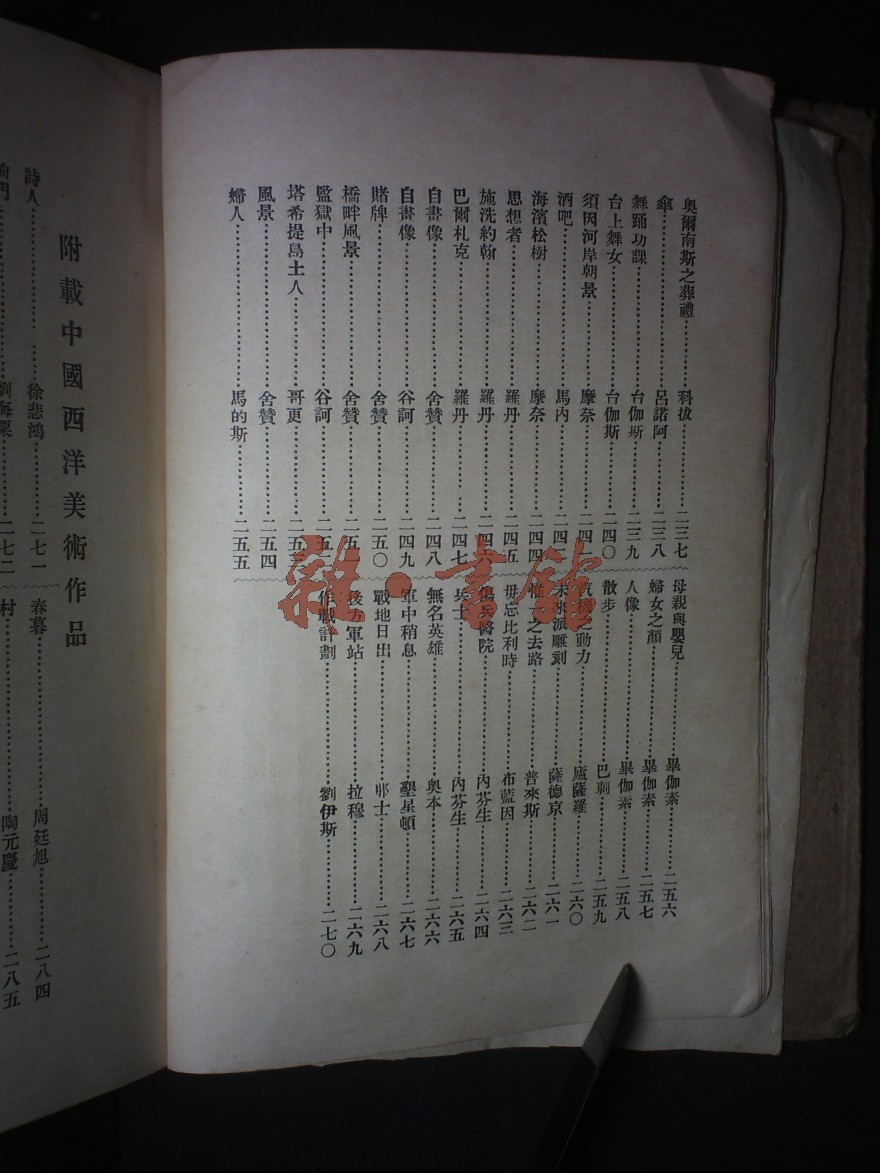 奧爾南斯之葬禮……科拔……二三七
傘……呂諾阿……二三八
舞踊功課……台伽斯……二三九
台上舞女……台伽斯……二四〇
須因河岸朝景……摩奈……二四一
酒吧……馬內……二四二
海濱松樹……摩奈……二四四
思想者……羅丹……二四五
施洗約翰……羅丹……二四六
巴爾札克……羅丹……二四七
自畫像……舍贊……二四八
自畫像……谷訶……二四九
賭牌……舍贊……二五〇
橋畔風景……舍贊……二五一
監獄中……谷訶……二五二
塔希提島土人……哥更……二五三
風景……舍贊……二五四
婦人……馬的斯……二五五
母親與嬰兒……畢伽素……二五六
婦女之顏……畢伽素……二五七
人像……畢伽素……二五八
散步……巴剌……二五九
汽機之動力……盧薩羅……二六〇
未來派雕刻……薩德京……二六一
惟一之去路……普來斯……二六二
毋忘比利時……布藍因……二六三
傷兵醫院……內芬生……二六四
兵士……內芬生……二六五
無名英雄……奧本……二六六
軍中稍息……墾星頓……二六七
戰地日出……那士……二六八
後方軍站……拉穆……二六九
作戰計劃……劉伊斯……二七〇
附載中國西洋美術作品
詩人……徐悲鴻……二七一
前門……劉海粟……二七二
春暮……周廷旭……二八四
村……陶元慶……二八五
雜·書館